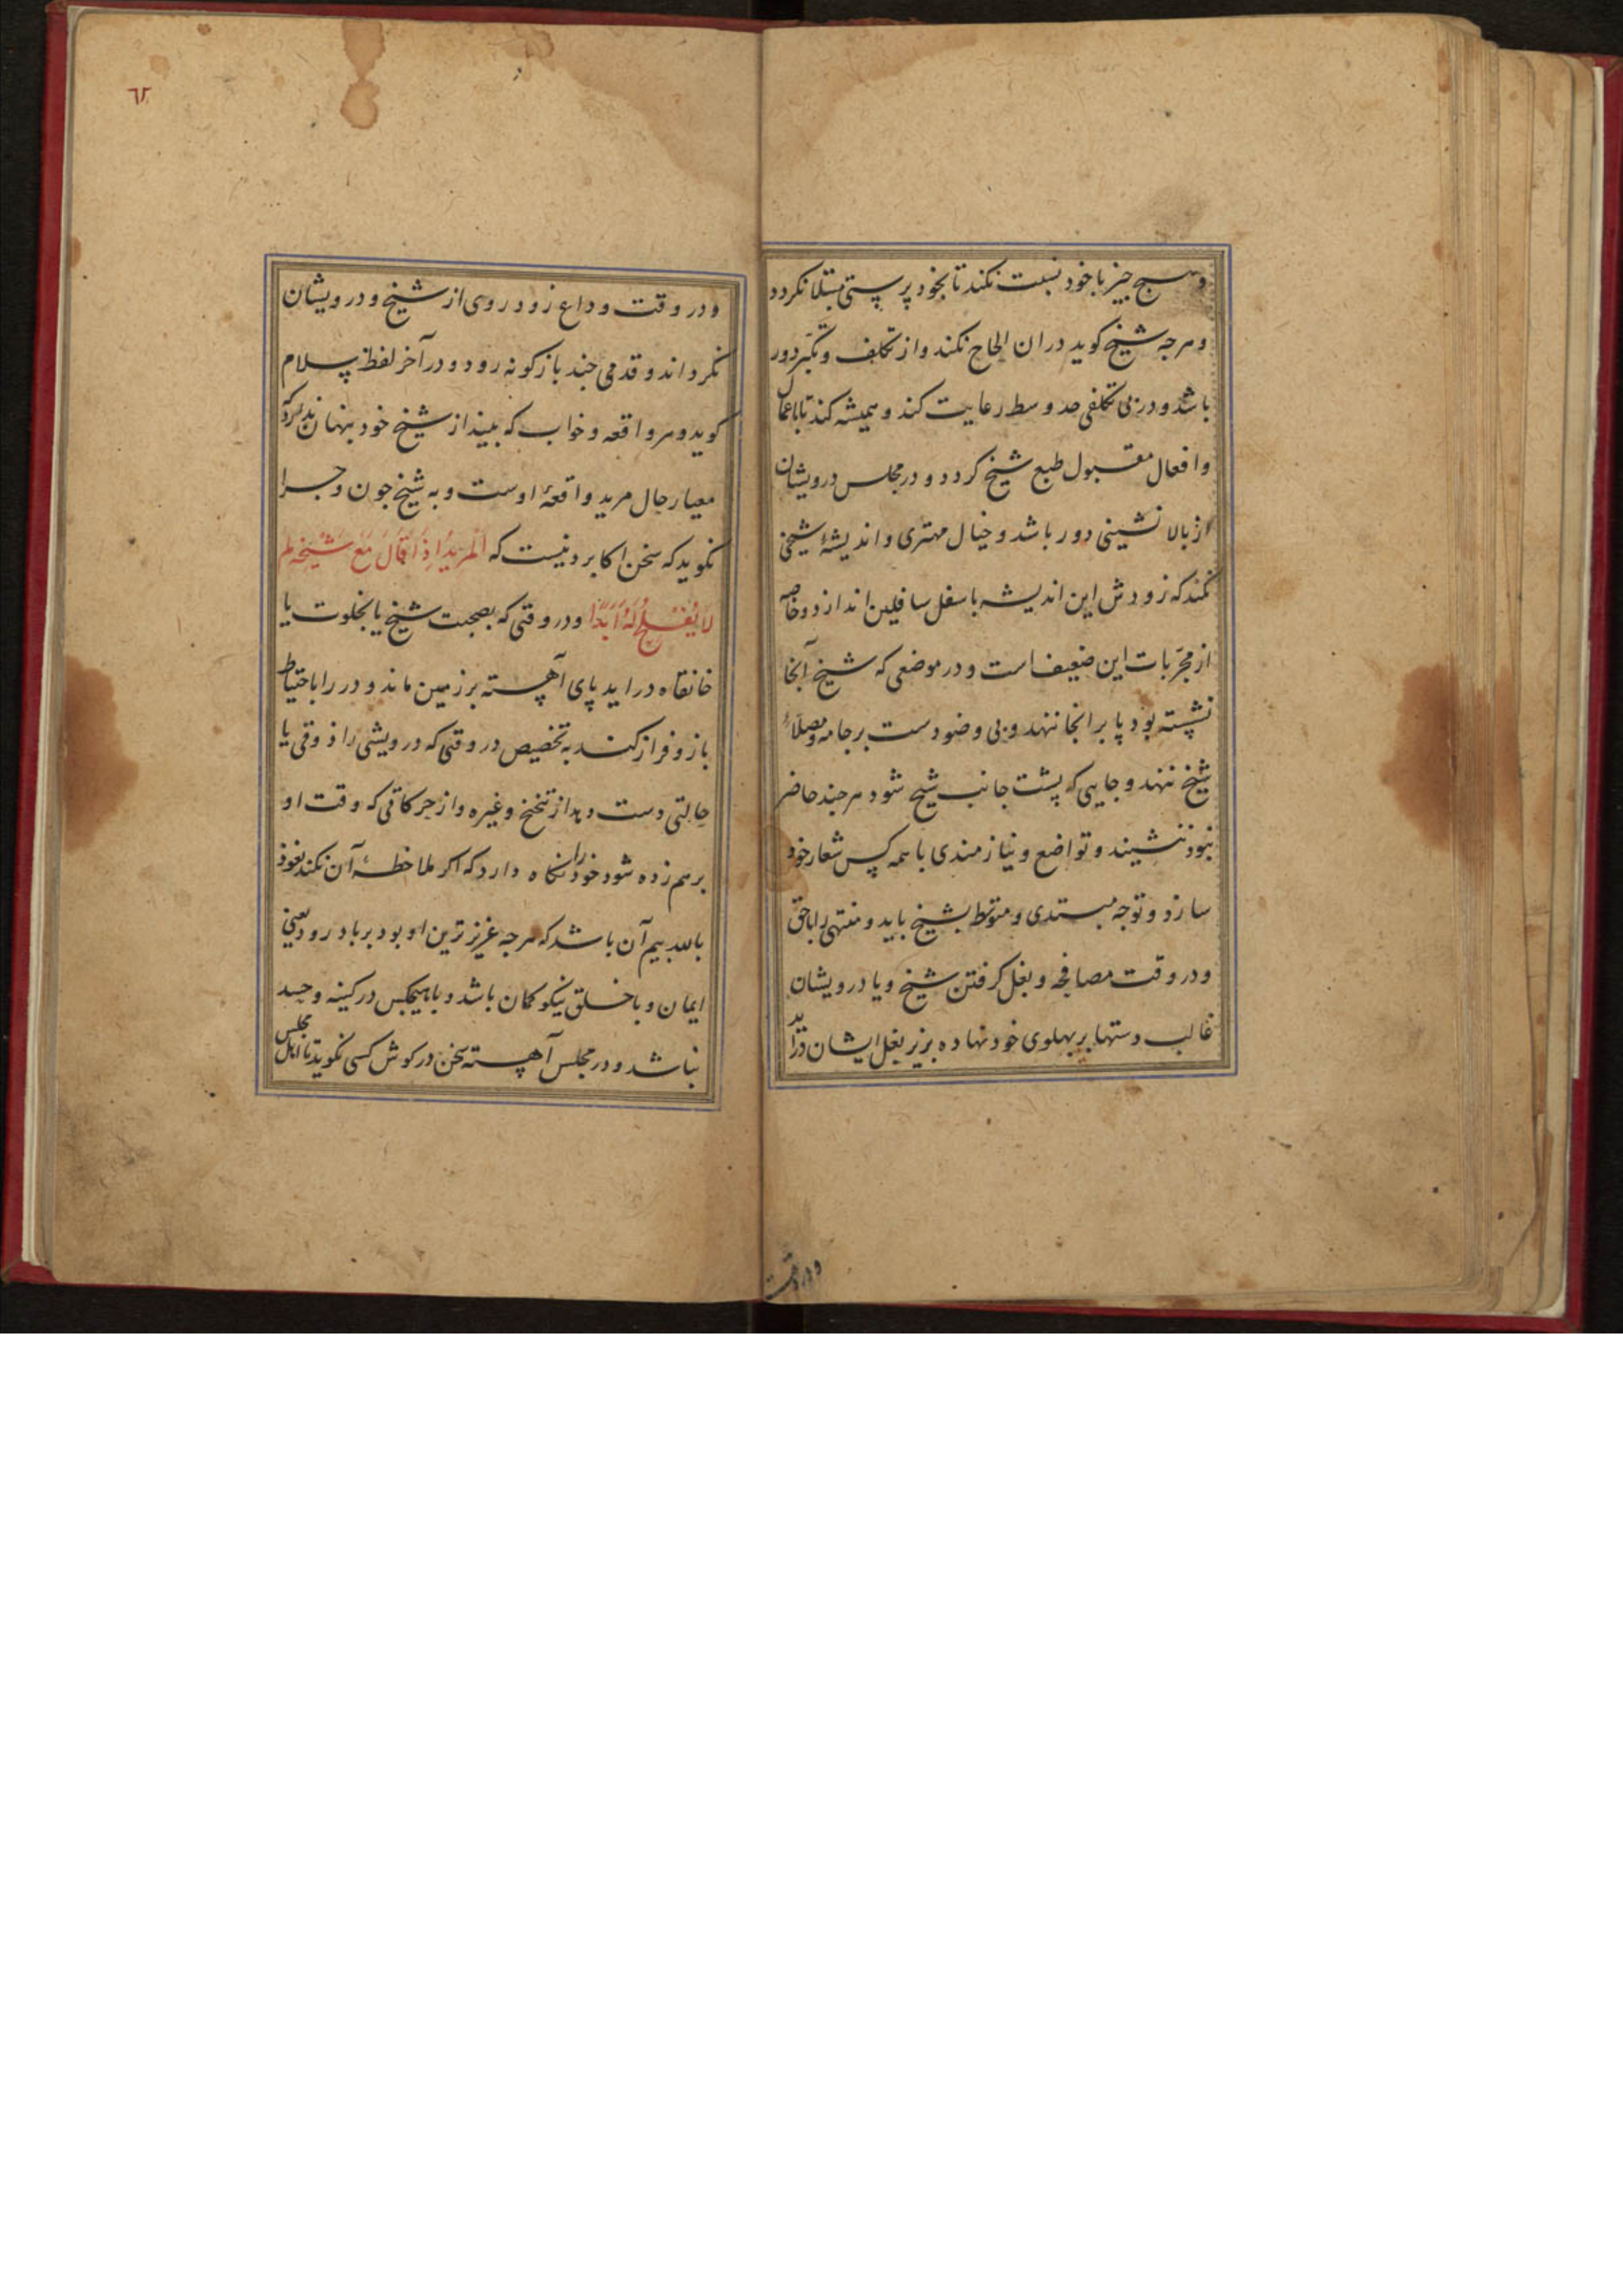 وهیچ جیز باخود نسبت نکند تا بخود پرستی مبتلا نکردد
وهرجه شیخ کوید دران الحاح نکند واز تکلف وتکبّر دور
باشد ودر بی تکلفی حد وسط رعایت کند وهمیشه کند تا باعمال
وافعال مقبول طبع شیخ کردد ودر مجلس درویشان
از بالا نشینی دور باشد وخیال مهتری واندیشهٔ شیخی
نکند که زودش این اندیشه باسفل سافلین اندازد وخاصه
از مجرّبات این ضعیف است ودر موضعی که شیخ آنجا
نشسته بود پا برانجا ننهد وبی وضو دست بر جامه ومصلاءِ
شیخ ننهد وجایی که پشت جانب شیخ شود هرجند حاضر
نبود ننشیند وتواضع ونیازمندی باهمه کس شعار خود
سازد وتوجه مبتدی ومتوسط بشیخ باید ومنتهی را باحق
ودر وقت مصافحه وبغل کرفتن شیخ ویا درویشان
غالب دستها بر بهلوی خود نهاده بزیر بغل ایشان دراید
ودر وقت
٦٢
ودر وقت وداع زود روی از شیخ ودرویشان
نکرداند وقدمی جند بازکونه رود ودر آخر لفظ سلام
کوید وهر واقعه وخواب که بیند از شیخ خود بنهان ندارد که
معیار حال مرید واقعهٔ اوست وبه شیخ جون وجرا
نکوید که سخن اکابر دنیست که اَلْمَرِیدُ اِذَا قَالَ مَعَ شَیْخِه لم
لَا یُفْلِحُ لَهُ اَبَدًا ودر وقتی که بصحبت شیخ یا بخلوت یا
خانقاه دراید پای آهسته بر زمین ماند ودر را باحتیاط
باز وفراز کند به تخصیص در وقتی که درویشی را ذوقی یا
حالتی دست دهد از تنخنخ وغیره واز حرکاتی که وقت او
برهم زده شود خود را نکاه دارد که اکر ملاحظهٔ آن نکند نعوذ
بالله بیم آن باشد که هرجه عزیزترین او بود برباد رود یعنی
ایمان وباخلق نیکو کمان باشد وباهیجکس در کینه وحسد
نباشد ودر مجلس آهسته سخن در کوش کسی نکوید تا اهل مجلس